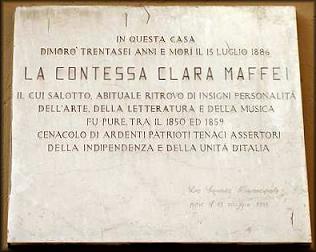 IN QUESTA CASA
DIMORÒ TRENTASEI ANNI E MORÌ IL 15 LUGLIO 1886
LA CONTESSA CLARA MAFFEI
IL CUI SALOTTO, ABITUALE RITROVO DI INSIGNI PERSONALITÀ
DELL'ARTE, DELLA LETTERATURA E DELLA MUSICA
FU PURE, TRA IL 1850 ED 1859
CENACOLO DI ARDENTI PATRIOTI TENACI ASSERTORI
DELLA INDIPENDENZA E DELLA UNITÀ D'ITALIA